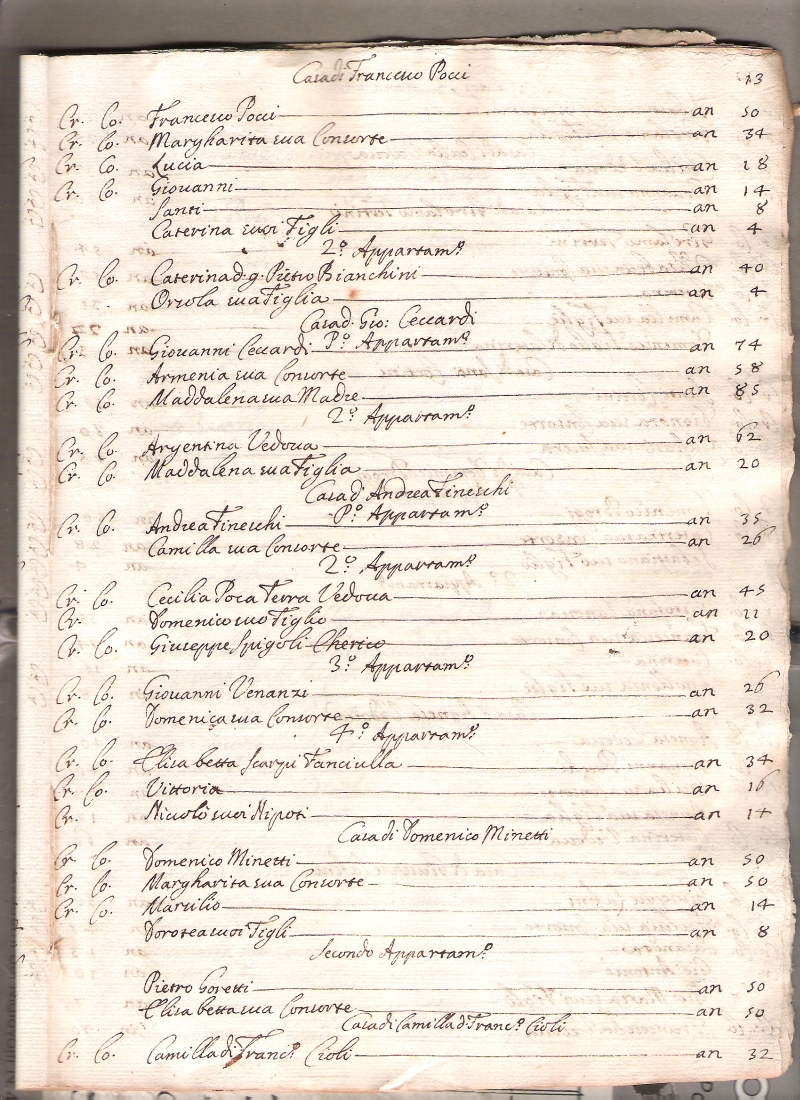 Casa di Francesco Pocci 13
Cr. Co. Francesco Pocci an 50
Cr. Co. Margharita sua Consorte an 34
Cr. Co. Lucia an 18
Cr. Co. Giovanni an 14
Santi an 8
Caterina suoi Figli an 4
2º Appartamº
Cr. Co. Caterina d. q. Pietro Bianchini an 40
Orsola sua Figlia an 4
Casa d. Gio: Ceccardi
Pº Appartamº
Cr. Co. Giovanni Ceccardi an 74
Cr. Co. Armenia sua Consorte an 58
Cr. Co. Maddalena sua Madre an 85
2º Appartamº
Cr. Co. Argentina Vedova an 62
Cr. Co. Maddalena sua Figlia an 20
Casa d'Andrea Fineschi
Pº Appartamº
Cr. Co. Andrea Fineschi an 35
Camilla sua Consorte an 26
2º Appartamº
Cr. Co. Cecilia Poca Terra Vedoua an 45
Cr. Domenico suo Figlio an 11
Cr. Co. Giuseppe Spigoli Cherico an 20
3º Appartamº
Cr. Co. Giovanni Venanzi an 26
Cr. Co. Domenica sua Consorte an 32
4º Appartamº
Cr. Co. Elisabetta Scarpi Fanciulla an 34
Cr. Co. Vittoria an 16
Cr. Niccolò suoi Nipoti an 14
Casa di Domenico Minetti
Cr. Co. Domenico Minetti an 50
Cr. Co. Margharita sua Consorte an 50
Cr. Co. Marsilio an 14
Dorotea suoi Figli an 8
Secondo Appartamº
Pietro Goretti an 50
Elisabetta sua Consorte an 50
Casa di Camilla d. Francº Cioli
Cr. Co. Camilla di Francº Cioli an 32